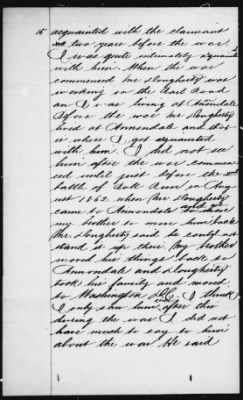 15 acquainted with the claimant
two years before the war
I was quite intimately acquainted
with him. When the war
commenced Mr Dougherty was
working on the Rail Road
and I was living at Annandale
before the war Mr Dougherty
lived at Annandale and this
is where I got acquainted
with him. I did not see
him after the war commen-
ced until just before the
battle of Bull Run in Aug-
ust 1862 when Mr Dougherty
came to Annondale
my brother to move him back
Mr Dougherty said he could not
stand it up there. My brother
moved his things back to
Annondale and Dougherty
took his family and moved
to Washington D.C. I think
I only saw him after this
during the war I did not
have much to say to him
about the war He said